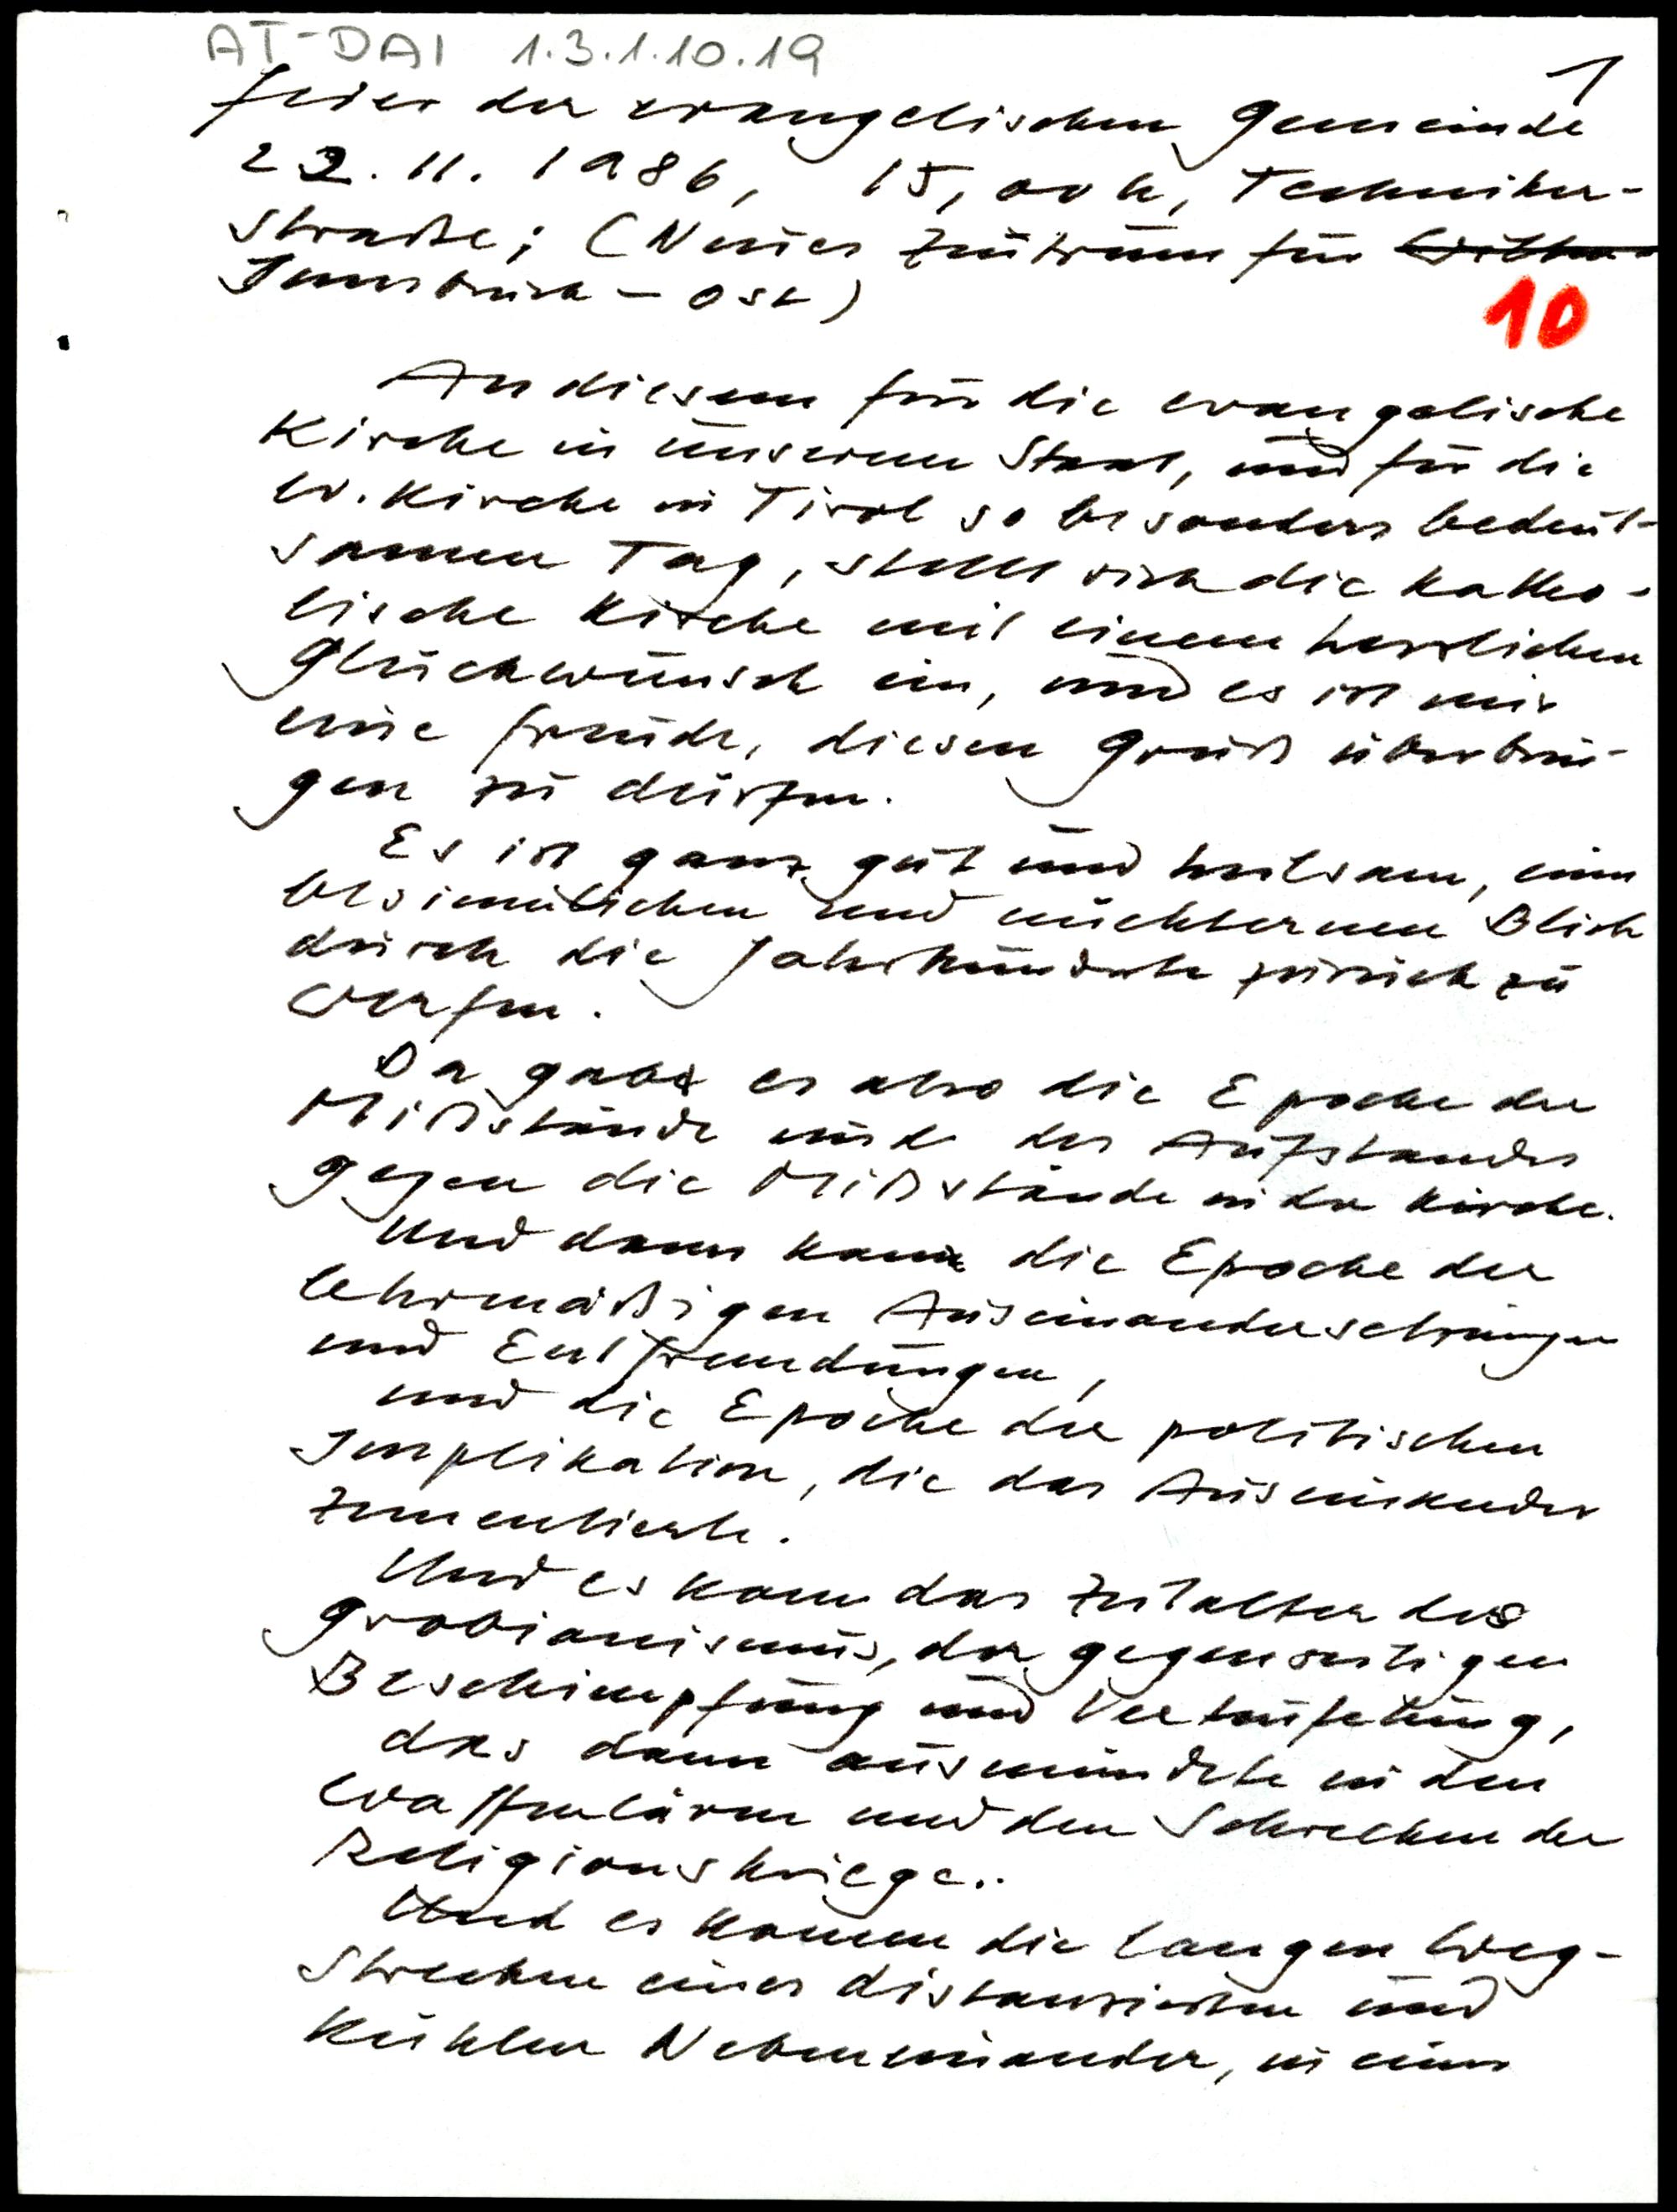 AT-DAI 1.3.1.10.19
1
Feier der evangelischen Gemeinde
22. 11. 1986, 15,00 h, Techniker-
straße; (Neues Zentrum für
Innsbruck - Ost)
10
An diesem für die evangelische
Kirche in unserem Staat, und für die
ev. Kirche in Tirol so besonders bedeut-
samen Tag, stellt sich die katho-
lische Kirche mit einem herzlichen
Glückwunsch ein, und es ist mir
eine Freude, diesen Gruß überbrin-
gen zu dürfen.
Es ist ganz gut und heilsam, einen
besinnlichen und nüchternen Blick
durch die Jahrhunderte zurück zu
werfen.
Da gab es also die Epoche der
Mißstände und des Aufstandes
gegen die Mißstände in der Kirche.
Und dann kam die Epoche der
lehrmäßigen Auseinandersetzungen
und Entfremdungen,
und die Epoche der politischen
Implikation, die das Auseinander
zementierte.
Und es kam das Zeitalter des
Grobianismus, der gegenseitigen
Beschimpfung und Verteufelung,
das dann ausmündete in den
Waffenlärm und den Schrecken der
Religionskriege..
Und es kamen die langen Weg-
strecken eines distanzierten und
kühlen Nebeneinander, in einer